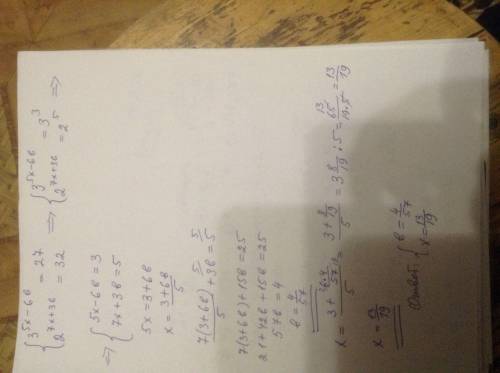 {3^(5x-6в) = 27, 2^(7x+3в) = 32 => {3^(5x-6в) = 3^3, 2^(7x+3в) = 2^5 =>
=> {5x-6в=3, 7x+3в=5
5x=3+6в
x = (3+6в)/5
7(3+6в)/5 + 3в = 5
7(3+6в)+15в=25
21+42в+15в=25
57в=4
в = 4/57
x = (3 + 6·4/57)/5 = (3 + 8/19)/5 = 3 8/19 : 5 = 65/(19·5) = 13/19
x = 13/19
Ответ: {в = 4/57, x = 13/19